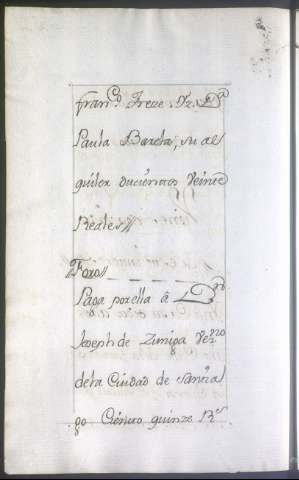 Fran.co Freze, Vz.o D.a
Paula Barela, su al
quiler ducientos Veinte
Reales //
Foro //
Paga por ella â D.n
Joseph de Zuniga Vez.no
de la Ciudad de Santia
go Ciento quinze R.s